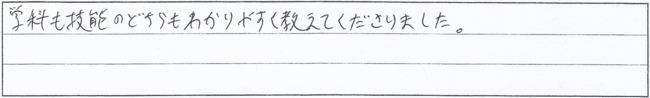 学科も技能のどちらもわかりやすく教えてくださりました。